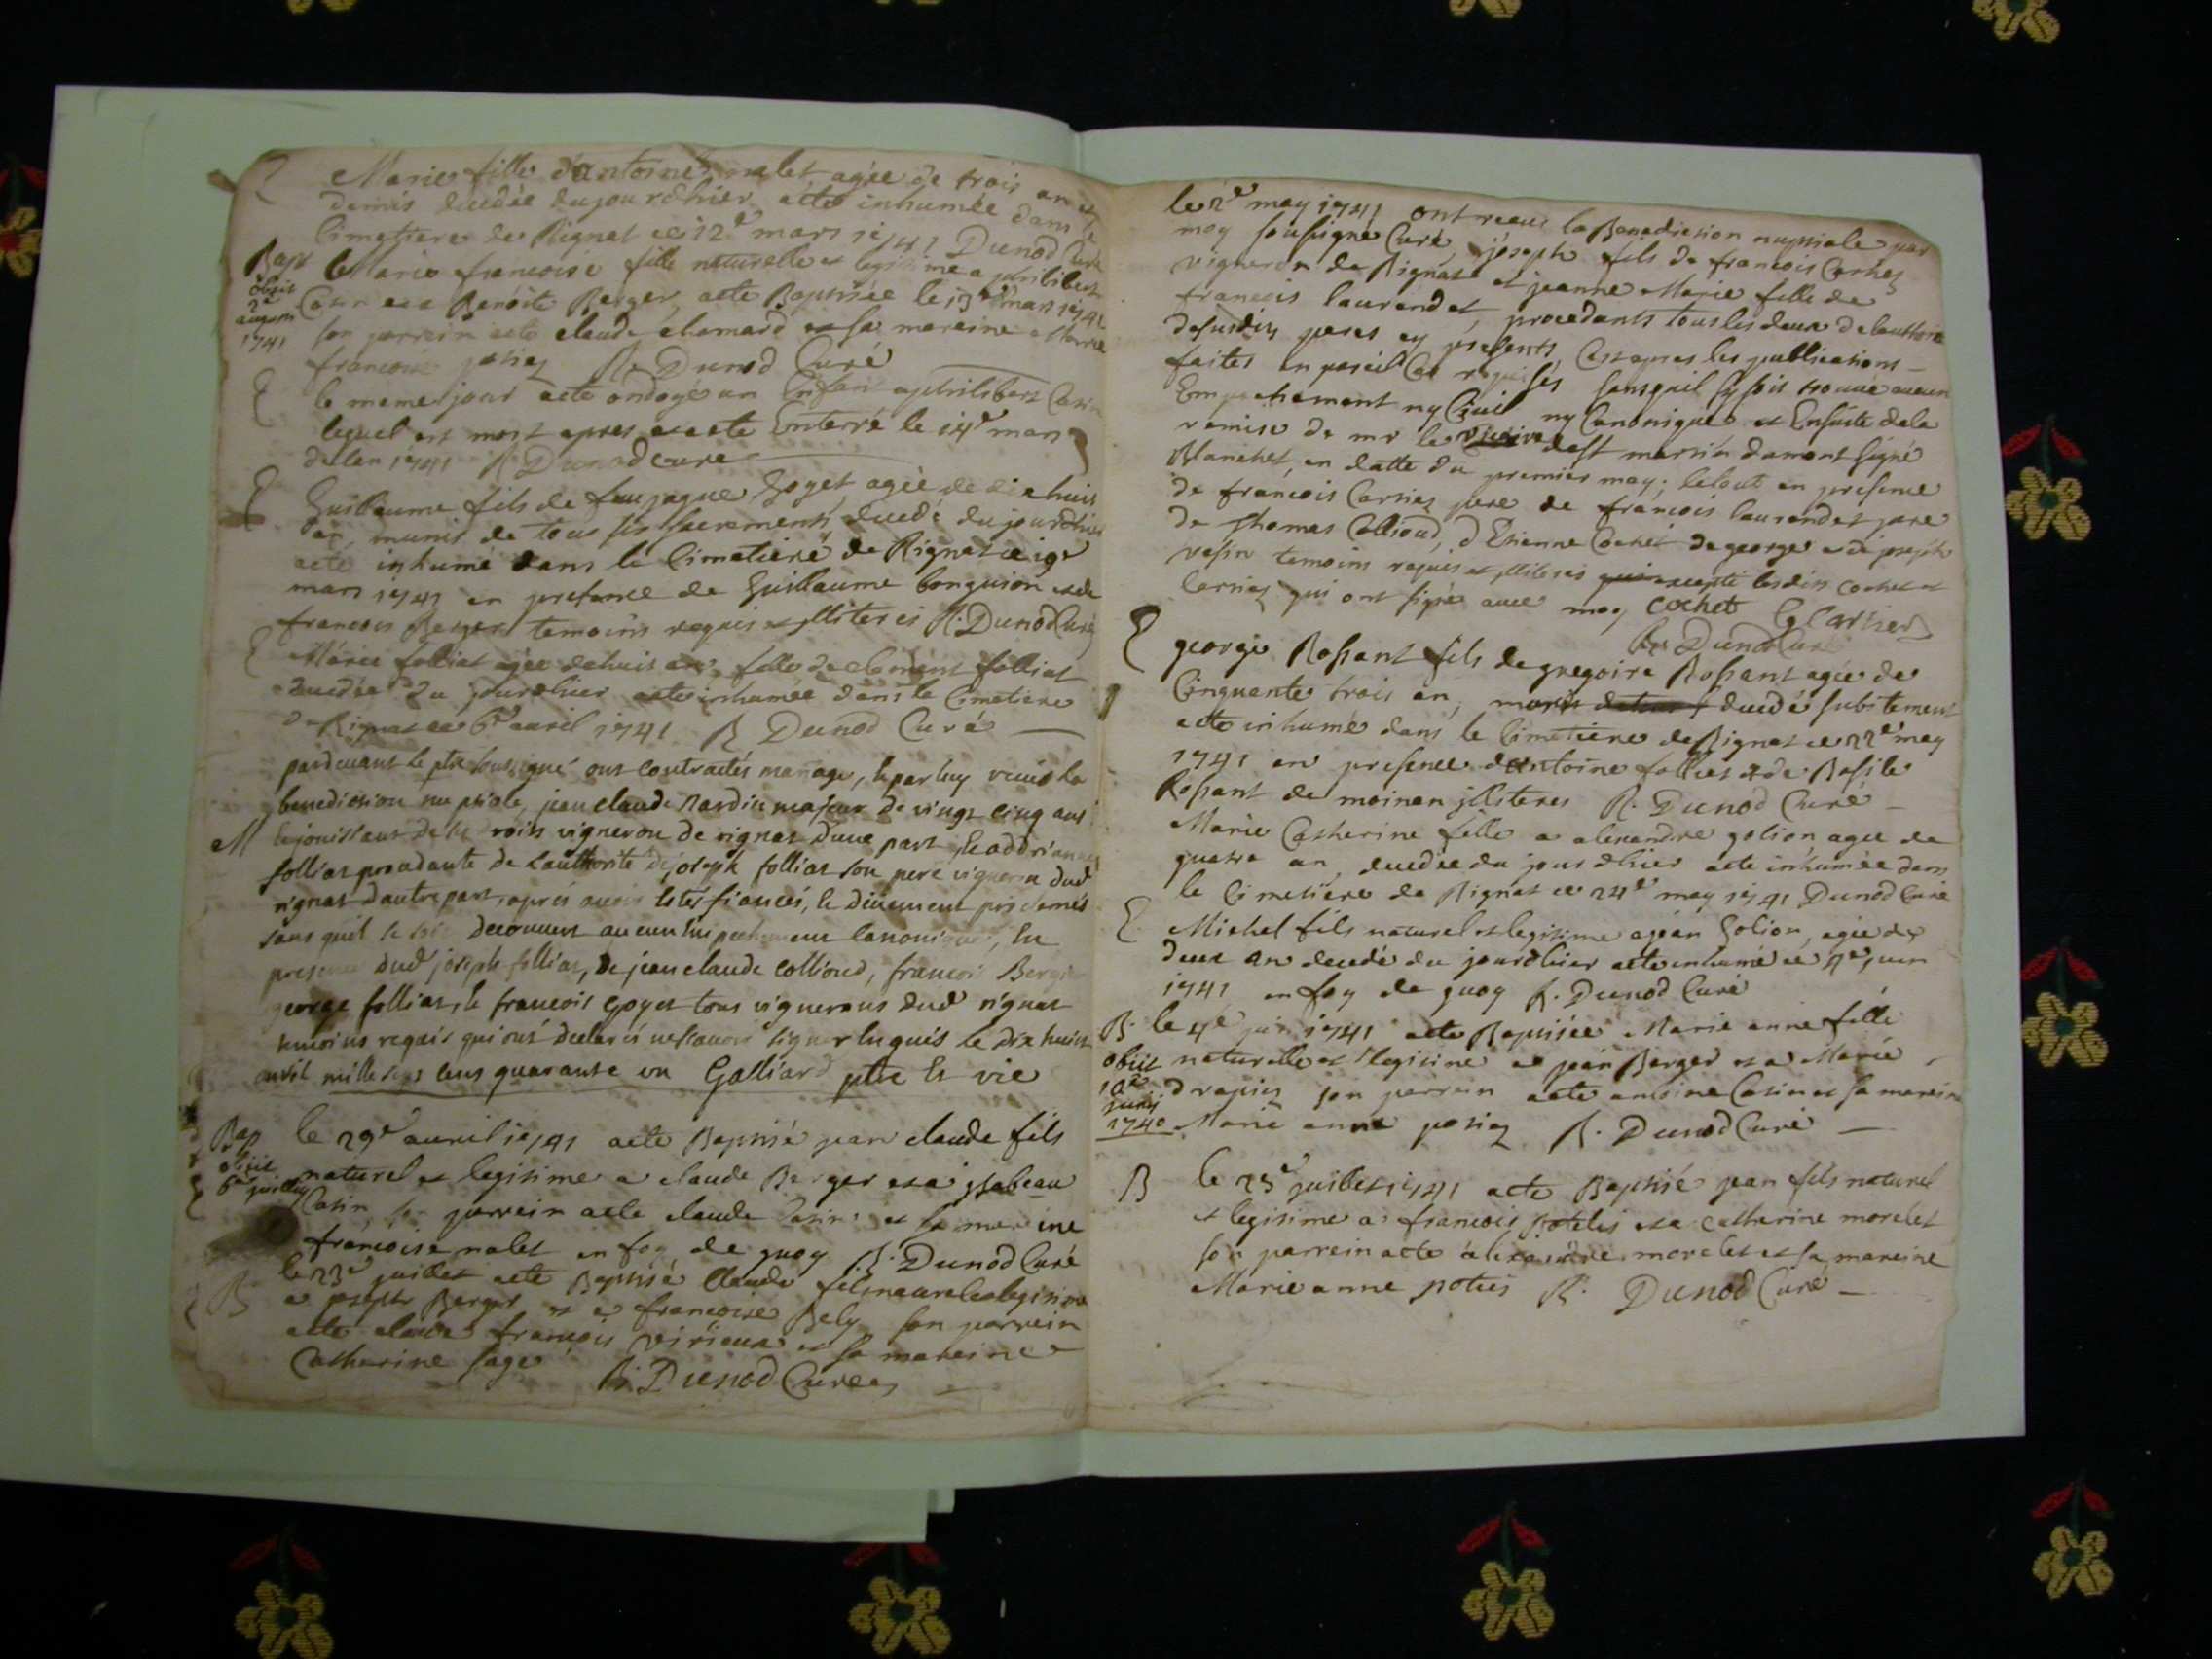 Marie fille d'antoine malet agée de trois an et
demis decedée du jour d'hier a été inhumée dans le
Cimetiere de Rignat ce 12e mars 1741 Dunod Curé
Bapt Marie francoise fille naturelle et legitime a philibert
obiit
2a
augusti
1741
Casin et a Benoite Berger, a été Baptisée le 13e mars 1741
son parrein a été claude chamard et sa mareine Marie
francoise R. Dunod Curé
E le meme jour a été ondoyé un Enfant a philibert Casin
lequel est mort apres et a été Enterré le 14e mars
de l'an 1741 R Dunod cure
E Guillaume fils de feu jaque Goyet agée de dix huit
an, munis de tous ses sacrements, decedé du jour d'hier
a été inhumé dans le Cimetiere de Rignat ce 19e
mars 1741 en presence de Guillaume bonguson et de
francois Berger temoins requis et jlliteres R. Dunod Curé
E Marie folliat agée de huit an fille de clement folliat
decedée du jour d'hier a été inhumée dans le Cimetiere
de Rignat ce 6e auril 1741 R Dunod Curé
pardeuant le ptre soussigné ont contractés mariage, & par luy receus la
benediction nuptiale, jean claude Nardin majeur de vingt cinq ans
M & jouissant de ses droits vigneron de rignat d'une part, &
folliat procedante de l'authorité de joseph folliat son pere vigneron dud
rignat d'autre part, aprés auoir estés fiancés, & düement proclamés
sans quil se soit decouuert aucun Empechement Canonique, En
presence dud joseph folliat, de jean claude Collioud, francois Berger
george folliat, & francois Goyet tous vignerons dud rignat
temoins requis qui ont declarés ne scauoir signer Enquis le dix huict
auril mille sept cens quarante un Galliard ptre & vic
Bap le 29e auril 1741 a été Baptisé jean claude fils
obiit
6a juillet
naturel et legitime a claude Berger et a jsabeau
Casin, son parrein a été claude Casin et sa mareine
francoise malet en foy de quoy R. Dunod Curé
B le 23e juillet a été Baptisé Claude fils naturel et legitime
a joseph Berger et a francoise Bely son parrein
a été claude francois virieux et sa mareine
Catherine sage R. Dunod Curé
le 2e may 1741 ont receus la Benediction nuptiale par
moy soussigné Curé, joseph fils de francois Cartier
vigneron de Rignat et jeanne Marie fille de
francois laurendet, procedants tous les deux de l'authorité
desusdits peres cy presents, Et apres les publications
faites en pareil Cas requises sans quil sy soit trouué aucun
Empechement ny Ciuil ny Canonique et Ensuite de la
remise de mr le vicaire de st martin damont signé
Blanchet, en datte du premier may; le tout en presence
de francois Cartier pere de francois laurendet pere
de thomas Collioud, d Etienne Cochet de george et de joseph
temoins requis et jlliteres excepté lesdits cochet et
Cartier qui ont signé auec moy Cochet G Cartier
R. Dunod Curé
E george Rossant fils de gregoire Rossant agée de
Cinquante trois an, decedé subitement
a été inhumé dans le Cimetiere de Rignat ce 22e may
1741 en presence d'antoine folliet et de Basile
Rossant de moinan jlliteres R. Dunod Curé
Marie Catherine fille a alexandre golion agée de
quatre an, decedée du jour d'hier a été inhumée dans
le Cimetiere de Rignat ce 24e may 1741 Dunod Curé
E Michel fils naturel et legitime a jean Golion, agée de
deux an decedé du jour d'hier a été inhumé ce 4e juin
1741 en foy de quoy R. Dunod Curé
B. le 4e juin 1741 a été Baptisée Marie anne fille
obiit
10a
junij
1740
naturelle et legitime a jean Berger et a Marie
son parrein a été antoine Casin et sa mareine
Marie anne R. Dunod Curé
B le 25e juillet 1741 a été Baptisé jean fils naturel
et legitime a francois et a catherine morelet
son parrein a été alexandre morelet et sa mareine
Marie anne R. Dunod Curé